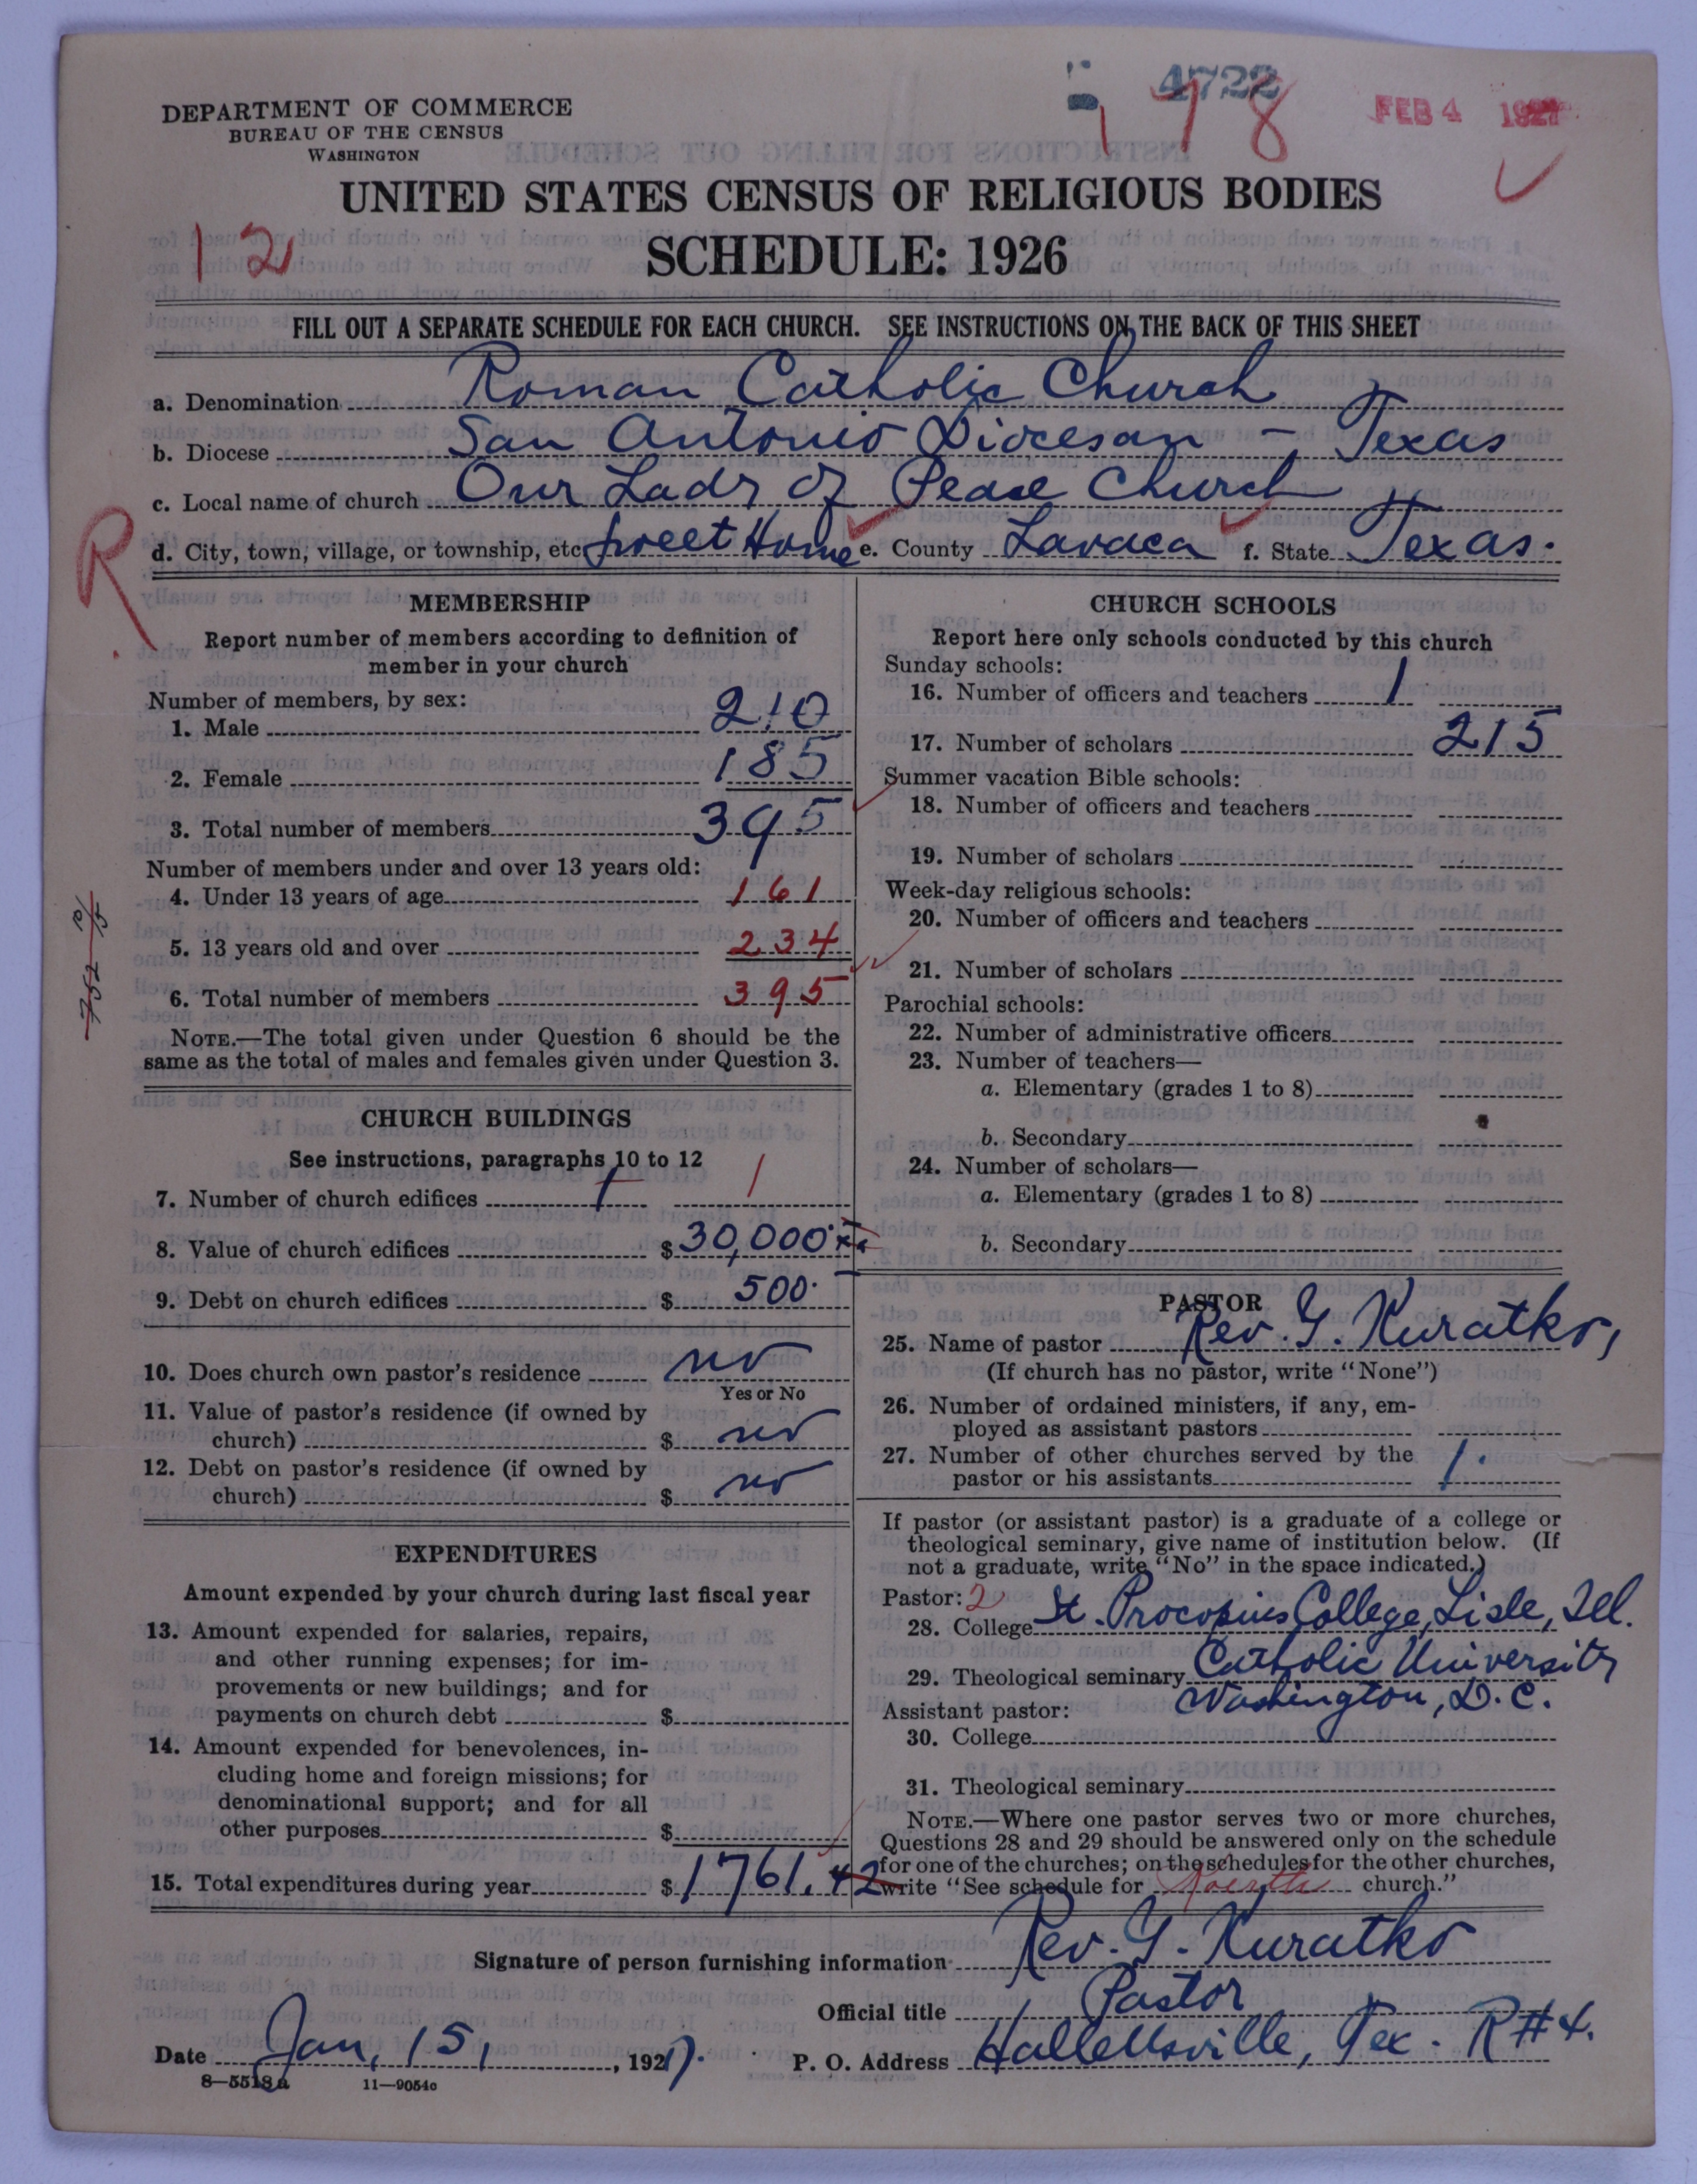 4722
178
FEB 4 1927
DEPARTMENT OF COMMERCE
BUREAU OF THE CENSUS
WASHINGTON
UNITED STATES CENSUS OF RELIGIOUS BODIES
12
SCHEDULE: 1926
FILL OUT A SEPARATE SCHEDULE FOR EACH CHURCH. SEE INSTRUCTIONS ON THE BACK OF THIS SHEET
a. Denomination Roman Catholic Church
b. Diocese San Antonio Diocesan - Texas
c. Local name of church Our Lady of Peace Church
R
d. City, town, village, or township, etc. Sweet Home e. County Lavaca f. State Texas.
MEMBERSHIP
Report number of members according to definition of
member in your church
Number of members, by sex:
1. Male 210
2. Female 185
3. Total number of members 395
Number of members under and over 13 years old:
4. Under 13 years of age 161
5. 13 years old and over 234
6. Total number of members 395
NOTE.—The total given under Question 6 should be the
same as the total of males and females given under Question 3.
CHURCH BUILDINGS
See instructions, paragraphs 10 to 12
7. Number of church edifices 1 1
8. Value of church edifices $ 30,000
9. Debt on church edifices $ 500.
10. Does church own pastor's residence no
Yes or No
11. Value of pastor's residence (if owned by
church) $ no
12. Debt on pastor's residence (if owned by
church) $ no
EXPENDITURES
Amount expended by your church during last fiscal year
13. Amount expended for salaries, repairs,
and other running expenses; for im-
provements or new buildings; and for
payments on church debt $
14. Amount expended for benevolences, in-
cluding home and foreign missions; for
denominational support; and for all
other purposes $
15. Total expenditures during year $ 1761.42
CHURCH SCHOOLS
Report here only schools conducted by this church
Sunday schools:
16. Number of officers and teachers 1
17. Number of scholars 215
Summer vacation Bible schools:
18. Number of officers and teachers
19. Number of scholars
Week-day religious schools:
20. Number of officers and teachers
21. Number of scholars
Parochial schools:
22. Number of administrative officers
23. Number of teachers—
a. Elementary (grades 1 to 8)
b. Secondary
24. Number of scholars—
a. Elementary (grades 1 to 8)
b. Secondary
PASTOR
25. Name of pastor Rev. G. Kuratko,
(If church has no pastor, write "None")
26. Number of ordained ministers, if any, em-
ployed as assistant pastors
27. Number of other churches served by the
pastor or his assistants 1.
If pastor (or assistant pastor) is a graduate of a college or
theological seminary, give name of institution below. (If
not a graduate, write "No" in the space indicated.)
Pastor: 2
28. College St. Procopius College, Lisle, Ill.
29. Theological seminary Catholic University
Washington, D.C.
Assistant pastor:
30. College
31. Theological seminary
NOTE.—Where one pastor serves two or more churches,
Questions 28 and 29 should be answered only on the schedule
for one of the churches; on the schedules for the other churches,
write "See schedule for church."
Signature of person furnishing information Rev. G. Kuratko
Official title Pastor
Date Jan. 15, 1927. P. O. Address Hallettsville, Tex. R#4.
8—5518a 11—9054c